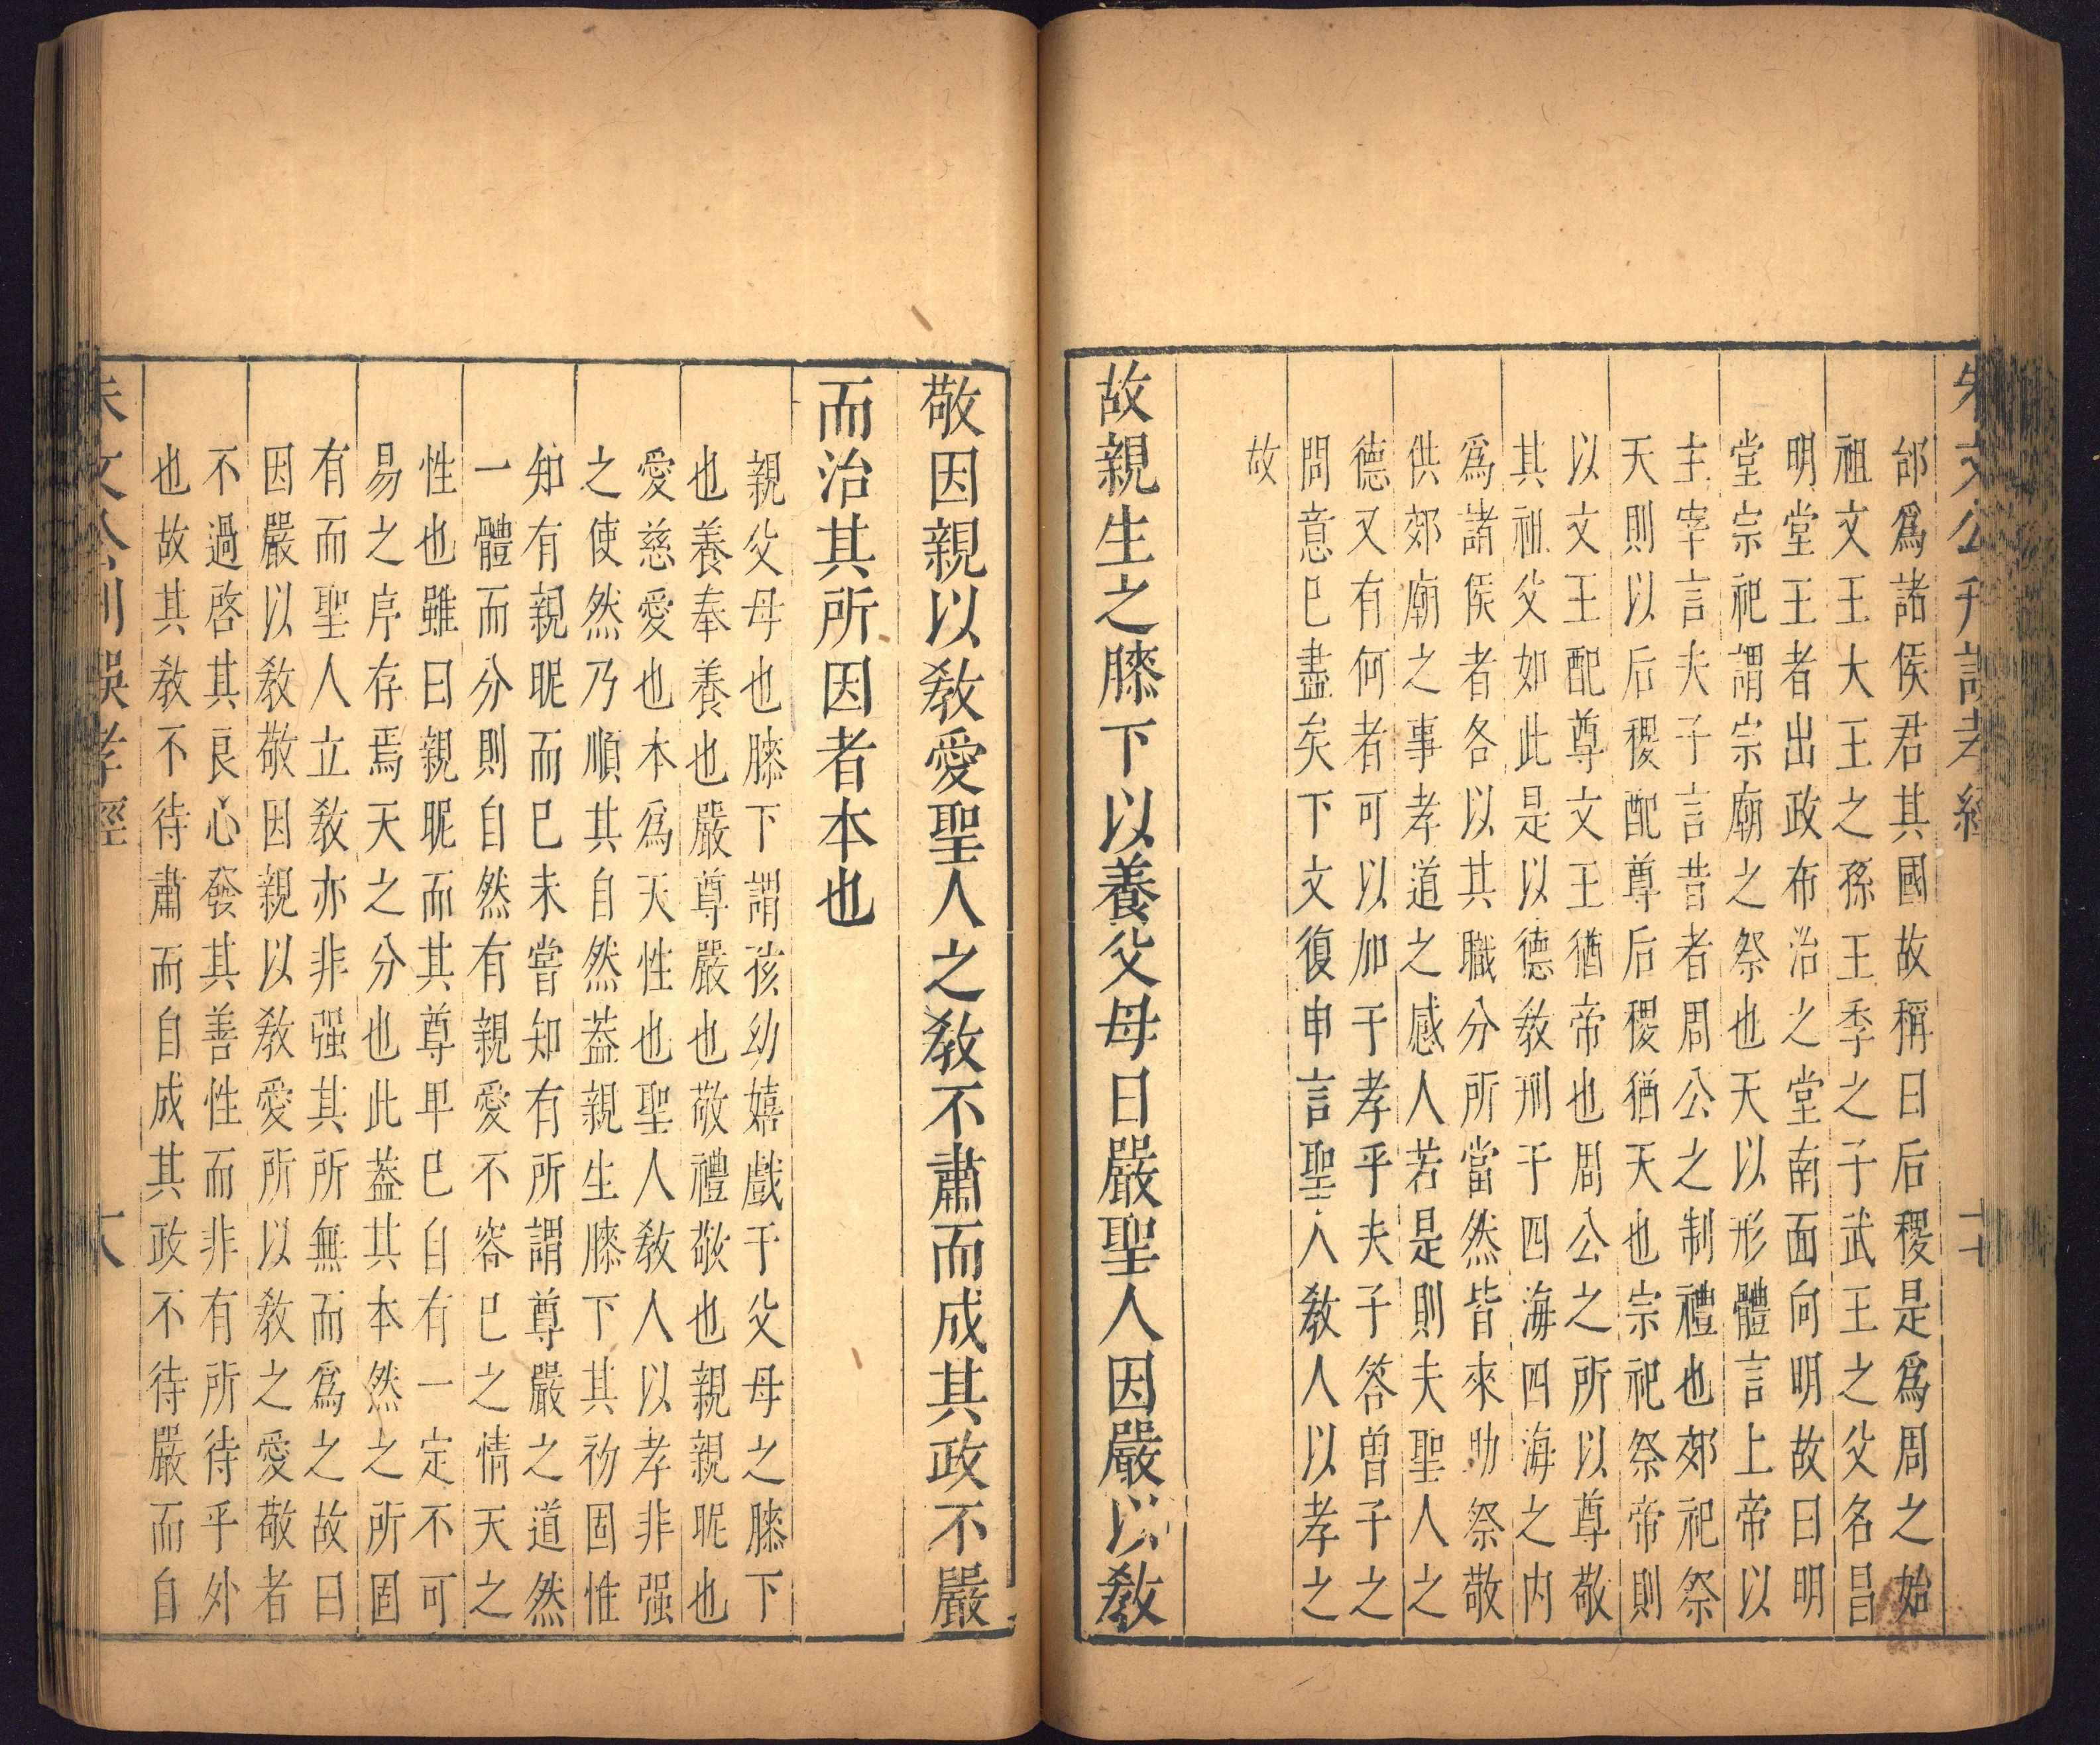 朱文公刊誤孝經
邰爲諸侯君其國故稱曰后稷是爲周之始
祖文王大王之孫王季之子武王之父名昌
明堂王者出政布治之堂南面向明故曰明
堂宗祀謂宗廟之祭也天以形體言上帝以
主宰言夫子言昔者周公之制禮也郊祀祭
天則以后稷配尊后稷猶天也宗祀祭帝則
以文王配尊文王猶帝也周公之所以尊敬
其祖父如此是以德敎刑于四海四海之内
爲諸侯者各以其職分所當然皆來助祭敬
供郊廟之事孝道之感人若是則夫聖人之
德又有何者可以加于孝乎夫子答曾子之
問意已盡矣下文復申言聖人敎人以孝之
故
故親生之膝下以養父母日嚴聖人因嚴以敎
敬因親以敎愛聖人之敎不肅而成其政不嚴
而治其所因者本也
親父母也膝下謂孩幼嬉戲于父母之膝下
也養奉養也嚴尊嚴也敬禮敬也親親昵也
愛慈愛也本爲天性也聖人敎人以孝非强
之使然乃順其自然葢親生膝下其初固惟
知有親昵而已未嘗知有所謂尊嚴之道然
一體而分則自然有親愛不容已之情天之
性也雖曰親昵而其尊卑已自有一定不可
易之序存焉天之分也此葢其本然之所固
有而聖人立敎亦非强其所無而爲之故曰
因嚴以敎敬因親以敎愛所以敎之愛敬者
不過啓其良心發其善性而非有所待乎外
也故其敎不待肅而自成其政不待嚴而自
朱文公刊誤孝經